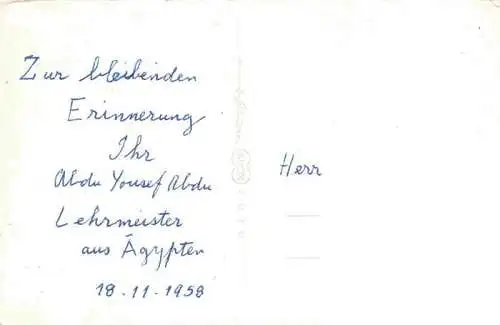 Zur bleibenden
Erinnerung
Ihr
Abdu Yousef Abdu
Lehrmeister
aus Ägypten
18.11.1958
Herr